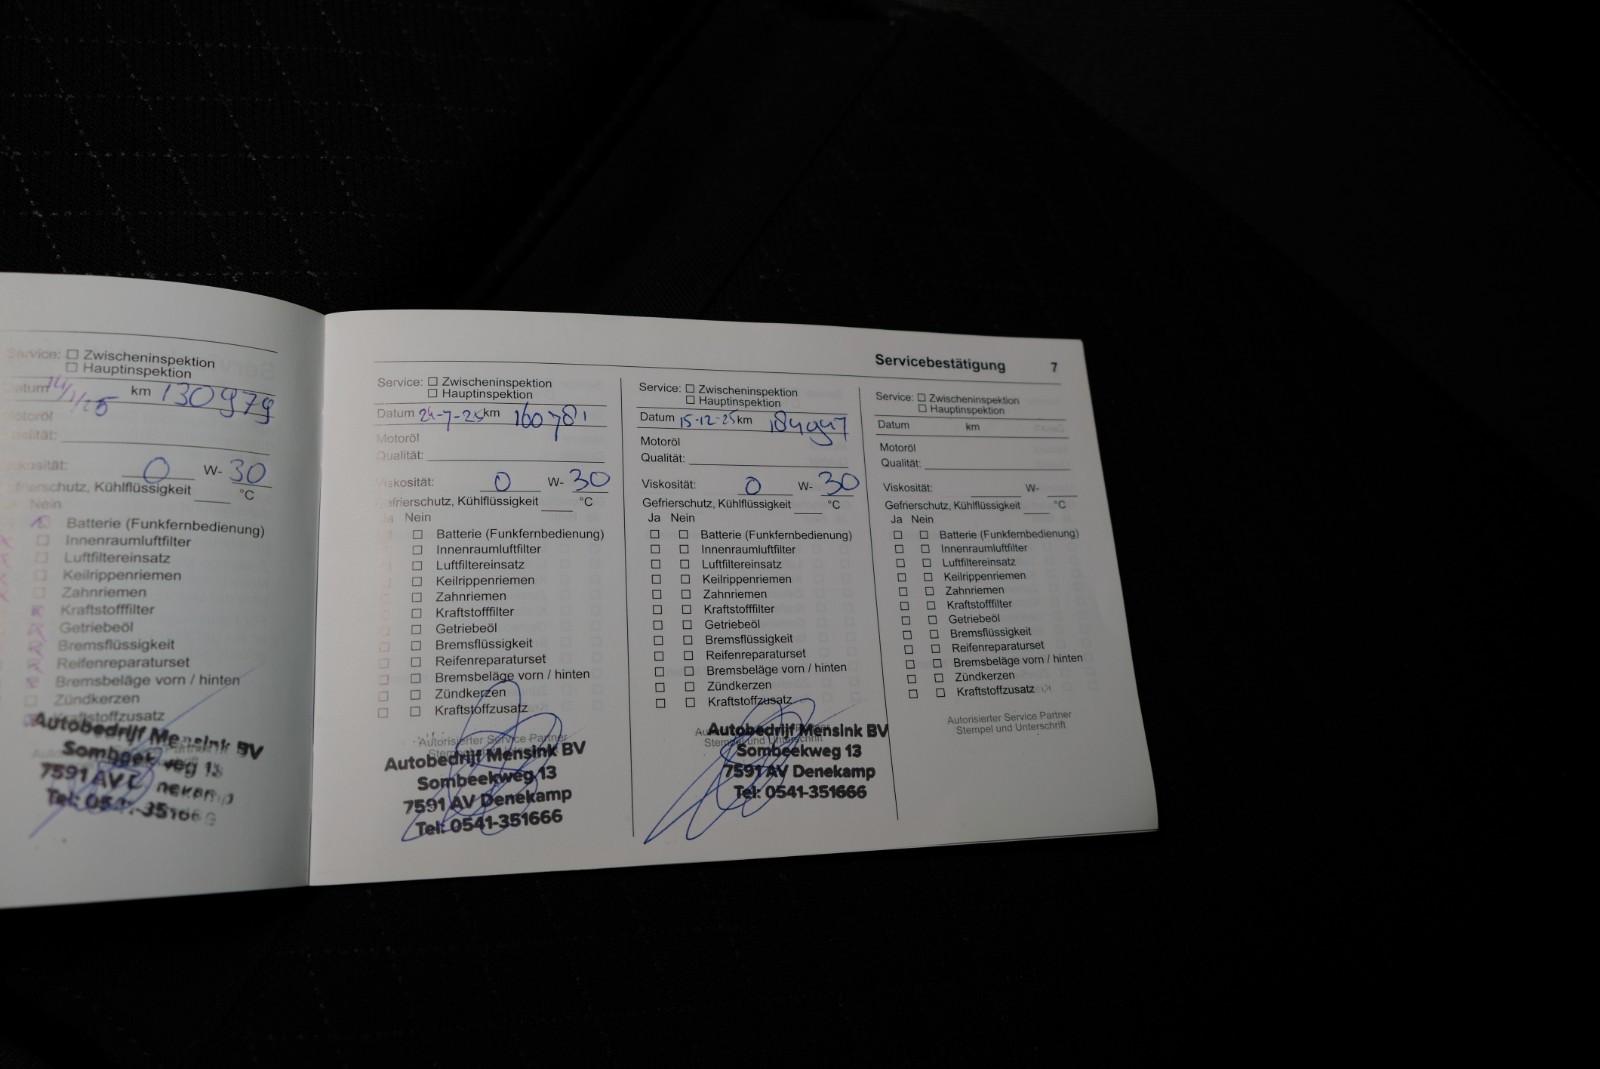 Service: ☐ Zwischeninspektion
☐ Hauptinspektion
Datum 14/1/25 km 130979
Motoröl
Qualität:
Viskosität: 0 W- 30
Gefrierschutz, Kühlflüssigkeit °C
Nein
Batterie (Funkfernbedienung)
Innenraumluftfilter
Luftfiltereinsatz
Keilrippenriemen
Zahnriemen
Kraftstofffilter
Getriebeöl
Bremsflüssigkeit
Reifenreparaturset
Bremsbeläge vorn / hinten
Zündkerzen
Kraftstoffzusatz
Autobedrijf Mensink BV
Sombeekweg 13
7591 AV Denekamp
Tel: 0541-351666
Servicebestätigung 7
Service: ☐ Zwischeninspektion
☐ Hauptinspektion
Datum 24-7-25 km 160781
Motoröl
Qualität:
Viskosität: 0 W- 30
Gefrierschutz, Kühlflüssigkeit °C
Ja Nein
☐ ☐ Batterie (Funkfernbedienung)
☐ ☐ Innenraumluftfilter
☐ ☐ Luftfiltereinsatz
☐ ☐ Keilrippenriemen
☐ ☐ Zahnriemen
☐ ☐ Kraftstofffilter
☐ ☐ Getriebeöl
☐ ☐ Bremsflüssigkeit
☐ ☐ Reifenreparaturset
☐ ☐ Bremsbeläge vorn / hinten
☐ ☐ Zündkerzen
☐ ☐ Kraftstoffzusatz
Autorisierter Service Partner
Stempel und Unterschrift
Autobedrijf Mensink BV
Sombeekweg 13
7591 AV Denekamp
Tel: 0541-351666
Service: ☐ Zwischeninspektion
☐ Hauptinspektion
Datum 15-12-25 km 184947
Motoröl
Qualität:
Viskosität: 0 W- 30
Gefrierschutz, Kühlflüssigkeit °C
Ja Nein
☐ ☐ Batterie (Funkfernbedienung)
☐ ☐ Innenraumluftfilter
☐ ☐ Luftfiltereinsatz
☐ ☐ Keilrippenriemen
☐ ☐ Zahnriemen
☐ ☐ Kraftstofffilter
☐ ☐ Getriebeöl
☐ ☐ Bremsflüssigkeit
☐ ☐ Reifenreparaturset
☐ ☐ Bremsbeläge vorn / hinten
☐ ☐ Zündkerzen
☐ ☐ Kraftstoffzusatz
Stempel und Unterschrift
Autobedrijf Mensink BV
Sombeekweg 13
7591 AV Denekamp
Tel: 0541-351666
Service: ☐ Zwischeninspektion
☐ Hauptinspektion
Datum km
Motoröl
Qualität:
Viskosität: W-
Gefrierschutz, Kühlflüssigkeit °C
Ja Nein
☐ ☐ Batterie (Funkfernbedienung)
☐ ☐ Innenraumluftfilter
☐ ☐ Luftfiltereinsatz
☐ ☐ Keilrippenriemen
☐ ☐ Zahnriemen
☐ ☐ Kraftstofffilter
☐ ☐ Getriebeöl
☐ ☐ Bremsflüssigkeit
☐ ☐ Reifenreparaturset
☐ ☐ Bremsbeläge vorn / hinten
☐ ☐ Zündkerzen
☐ ☐ Kraftstoffzusatz
Autorisierter Service Partner
Stempel und Unterschrift